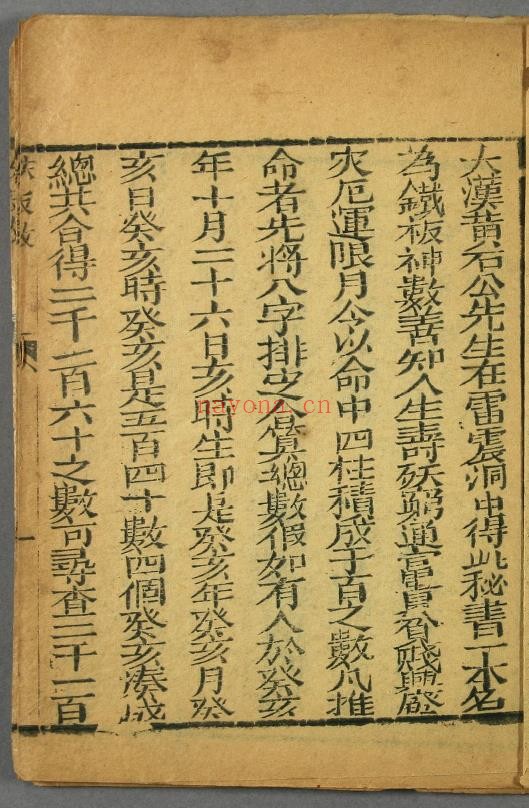 大漢黃石公先生在雷震洞中得此秘書一本名
為鐵板神數善知人生壽殀窮通富貴貧賤興廢
灾厄運限月令以命中四柱積成千百之數凡推
命者先將八字排定總數假如有人於癸亥
年十月二十六日亥時生即是癸亥年癸亥月癸
亥日癸亥時癸亥是五百四十數四個癸亥湊成
總共合得二千一百六十之數可尋查二千一百
鉄板数
一
nayona.cn